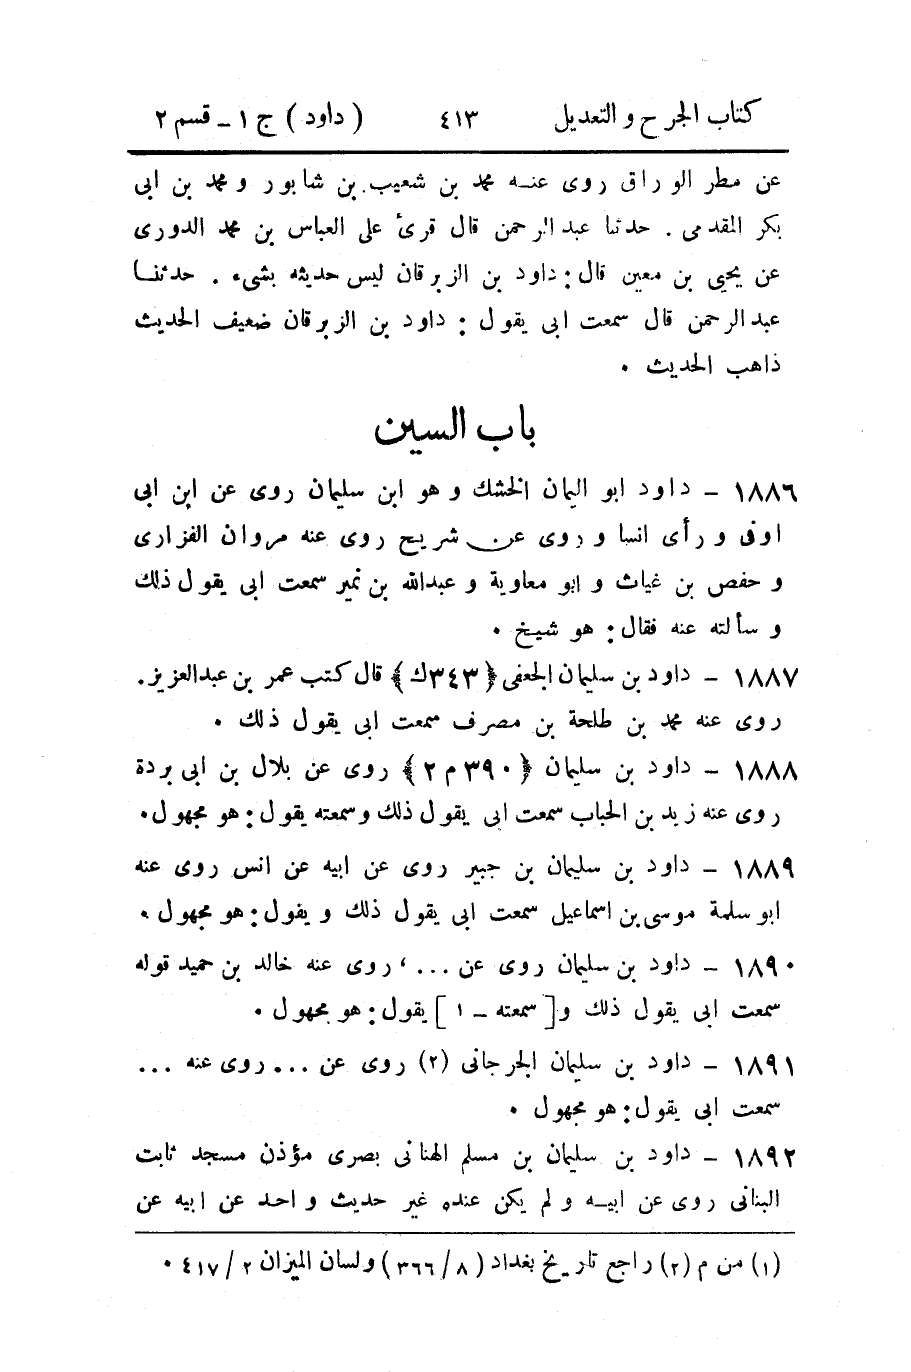 كتاب الجرح والتعديل ٤١٣ (داود) ج ١ ـ قسم ٢
عن مطر الوراق روى عنه محمد بن شعيب بن شابور و محمد بن ابى
بكر المقدمى . حدثنا عبد الرحمن قال قرئ على العباس بن محمد الدورى
عن يحيى بن معين قال: داود بن الزبرقان ليس حديثه بشىء . حدثنا
عبد الرحمن قال سمعت ابى يقول : داود بن الزبرقان ضعيف الحديث
ذاهب الحديث .
باب السين
١٨٨٦ - داود ابو اليمان الخشك و هو ابن سليمان روى عن ابن ابى
اوفى و رأى انسا و روى عن شريح روى عنه مروان الفزارى
و حفص بن غياث و ابو معاوية و عبدالله بن نمير سمعت ابى يقول ذلك
و سألته عنه فقال: هو شيخ .
١٨٨٧ - داود بن سليمان الجعفى ﴿٣٤٣ك﴾ قال كتب عمر بن عبدالعزيز.
روى عنه محمد بن طلحة بن مصرف سمعت ابى يقول ذلك .
١٨٨٨ - داود بن سليمان ﴿٣٩٠ م ٢﴾ روى عن بلال بن ابى بردة
روى عنه زيد بن الحباب سمعت ابى يقول ذلك وسمعته يقول: هو مجهول.
١٨٨٩ - داود بن سليمان بن جبير روى عن ابيه عن انس روى عنه
ابو سلمة موسى بن اسماعيل سمعت ابى يقول ذلك و يقول: هو مجهول .
١٨٩٠ - داود بن سليمان روى عن ...، روى عنه خالد بن حميد قوله
سمعت ابى يقول ذلك و[سمعته ـ ١] يقول: هو مجهول .
١٨٩١ - داود بن سليمان الجرجانى (٢) روى عن ... روى عنه ...
سمعت ابى يقول: هو مجهول .
١٨٩٢ - داود بن سليمان بن مسلم الهنائى بصرى مؤذن مسجد ثابت
البنانى روى عن ابيه و لم يكن عنده غير حديث واحد عن ابيه عن
(١) من م (٢) راجع تاريخ بغداد (٨/ ٣٦٦) ولسان الميزان ٢/ ٤١٧ .